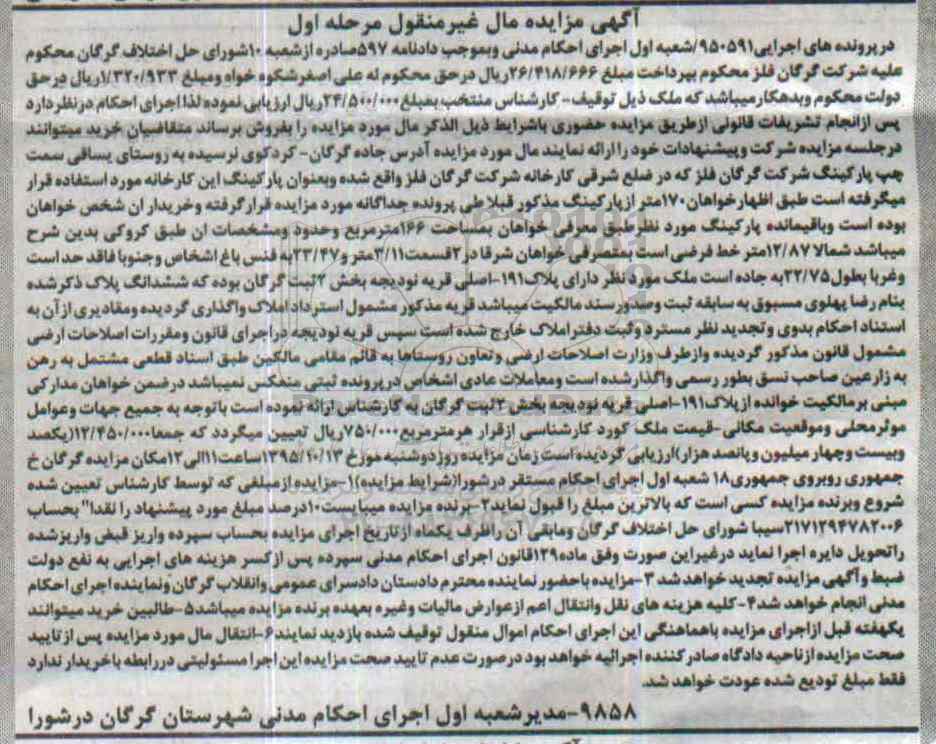 آگهی مزایده مال غیرمنقول مرحله اول
درپرونده های اجرایی۹۵۰۵۹۱/شعبه اول اجرای احکام مدنی وبموجب دادنامه ۵۹۷صادره ازشعبه ۱۰شورای حل اختلاف گرگان محکوم
علیه شرکت گرگان فلز محکوم بپرداخت مبلغ ۲۶/۴۱۸/۶۶۶ریال درحق محکوم له علی اصغرشکوه خواه ومبلغ ۱/۳۲۰/۹۳۳ریال درحق
دولت محکوم وبدهکارمیباشد که ملک ذیل توقیف- کارشناس منتخب بمبلغ۲۴/۵۰۰/۰۰۰ریال ارزیابی نموده لذا اجرای احکام درنظردارد
پس ازانجام تشریفات قانونی ازطریق مزایده حضوری باشرایط ذیل الذکر مال مورد مزایده را بفروش برساند متقاضیان خرید میتوانند
درجلسه مزایده شرکت وپیشنهادات خود را ارائه نمایند مال مورد مزایده آدرس جاده گرگان- کردکوی نرسیده به روستای یساقی سمت
چپ پارکینگ شرکت گرگان فلز که در ضلع شرقی کارخانه شرکت گرگان فلز واقع شده وبعنوان پارکینگ این کارخانه مورد استفاده قرار
میگرفته است طبق اظهارخواهان۱۷۰متر ازپارکینگ مذکور قبلا طی پرونده جداگانه مورد مزایده قرارگرفته وخریدار ان شخص خواهان
بوده است وباقیمانده پارکینگ مورد نظرطبق معرفی خواهان بمساحت ۱۶۶مترمربع وحدود ومشخصات ان طبق کروکی بدین شرح
میباشد شمالا ۱۲/۸۷متر خط فرضی است بمتصرفی خواهان شرقا در۲قسمت۳/۱۱متر و۲۳/۴۷به فنس باغ اشخاص وجنوبا فاقد حد است
وغربا بطول۲۲/۷۵به جاده است ملک مورد نظر دارای پلاک۱۹۱-اصلی قریه نودیجه بخش ۲ثبت گرگان بوده که ششدانگ پلاک ذکرشده
بنام رضا پهلوی مسبوق به سابقه ثبت وصدورسند مالکیت میباشد قریه مذکور مشمول استرداد املاک واگذاری گردیده ومقادیری ازآن به
استناد احکام بدوی وتجدید نظر مسترد وثبت دفتراملاک خارج شده است سپس قریه نودیجه دراجرای قانون ومقررات اصلاحات ارضی
مشمول قانون مذکور گردیده وازطرف وزارت اصلاحات ارضی وتعاون روستاها به قائم مقامی مالکین طبق اسناد قطعی مشتمل به رهن
به زارعین صاحب نسق بطور رسمی واگذارشده است ومعاملات عادی اشخاص درپرونده ثبتی منعکس نمیباشد درضمن خواهان مدارکی
مبنی برمالکیت خوانده ازپلاک۱۹۱-اصلی قریه نودیجه بخش ۲ثبت گرگان به کارشناس ارائه نموده است باتوجه به جمیع جهات وعوامل
موثرمحلی وموقعیت مکانی-قیمت ملک کورد کارشناسی ازقرار هرمترمربع۷۵۰/۰۰۰ریال تعیین میگردد که جمعا۱۲/۴۵۰/۰۰۰(یکصد
وبیست وچهار میلیون وپانصد هزار)ارزیابی گردیده است زمان مزایده روزدوشنبه مورخ ۱۳۹۵/۱۰/۱۳ساعت۱۱الی۱۲مکان مزایده گرگان خ
جمهوری روبروی جمهوری۱۸ شعبه اول اجرای احکام مستقر درشورا(شرایط مزایده)۱-مزایده ازمبلغی که توسط کارشناس تعیین شده
شروع وبرنده مزایده کسی است که بالاترین مبلغ را قبول نماید۲-برنده مزایده میبایست۱۰درصد مبلغ مورد پیشنهاد را نقدا" بحساب
۲۱۷۱۲۹۴۷۸۲۰۰۶سیبا شورای حل اختلاف گرگان ومابقی ان راظرف یکماه ازتاریخ اجرای مزایده بحساب سپرده واریز قبض واریزشده
راتحویل دایره اجرا نماید درغیراین صورت وفق ماده۱۲۹قانون اجرای احکام مدنی سپرده پس ازکسر هزینه های اجرایی به نفع دولت
ضبط وآگهی مزایده تجدید خواهد شد ۳-مزایده باحضور نماینده محترم دادستان دادسرای عمومی وانقلاب گرگان ونماینده اجرای احکام
مدنی انجام خواهد شد۴-کلیه هزینه های نقل وانتقال اعم ازعوارض مالیات وغیره بعهده برنده مزایده میباشد۵-طالبین خرید میتوانند
یکهفته قبل ازاجرای مزایده باهماهنگی این اجرای احکام اموال منقول توقیف شده بازدید نمایند۶-انتقال مال مورد مزایده پس ازتایید
صحت مزایده ازناحیه دادگاه صادرکننده اجرائیه خواهد بود درصورت عدم تایید صحت مزایده این اجرا مسئولیتی دررابطه باخریدار ندارد
فقط مبلغ تودیع شده عودت خواهد شد.
۹۸۵۸-مدیرشعبه اول اجرای احکام مدنی شهرستان گرگان درشورا